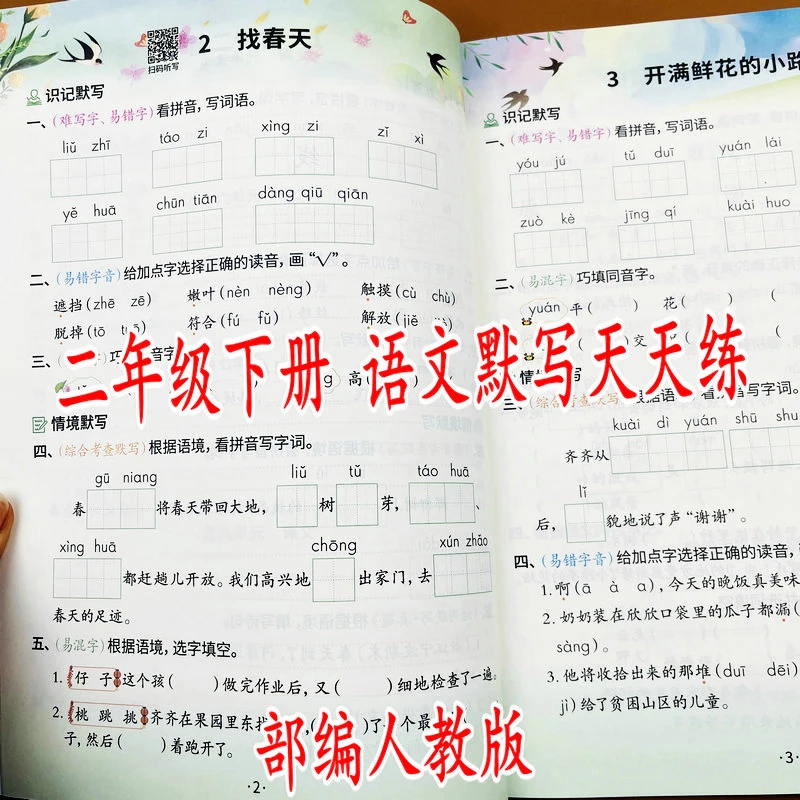 扫码听写
2 找春天
识记默写
一、(难写字、易错字)看拼音,写词语。
liǔ zhī táo zi xìng zi zǐ xì
yě huā chūn tiān dàng qiū qiān
二、(易错字音)给加点字选择正确的读音,画“√”。
遮挡(zhē zē) 嫩叶(nèn nèng) 触摸(cù chù)
脱掉(tō tuō) 符合(fú fǔ) 解放(jiě
三、
高(
情境默写
四、(综合考查默写)根据语境,看拼音写字词。
gū niang liǔ tǔ táo huā
春 将春天带回大地, 树 芽, 、
xìng huā chōng xún zhǎo
都赶趟儿开放。我们高兴地 出家门,去
春天的足迹。
五、(易混字)根据语境,选字填空。
1. 仔 子 这个孩( )做完作业后,又( )细地检查了一遍。
2. 桃 跳 挑 齐齐在果园里东找 ,( )了 个最
子,然后( )着跑开了。
·2·
3 开满鲜花的小路
识记默写
一、(难写字、易错字)看拼音,写词语。
yóu jú tǔ duī yuán lái
zuò kè jīng qí kuài huo
二、(易混字)巧填同音字。
yuán 平( ) 花( ) (
)交
情境默写
三、(综合考查默写)根据语 看拼音写字词。
kuài dì yuán shū shu
齐齐从
lǐ
后, 貌地说了声“谢谢”。
四、(易错字音)给加点字选择正确的读音,
1.啊(ā à a),今天的晚饭真美味
2. 奶奶装在欣欣口袋里的瓜子都漏(
sàng)。
3.他将收拾出来的那堆(duī dēi)
jì)给了贫困山区的儿童。
·3·
二年级下册 语文默写天天练
部编人教版